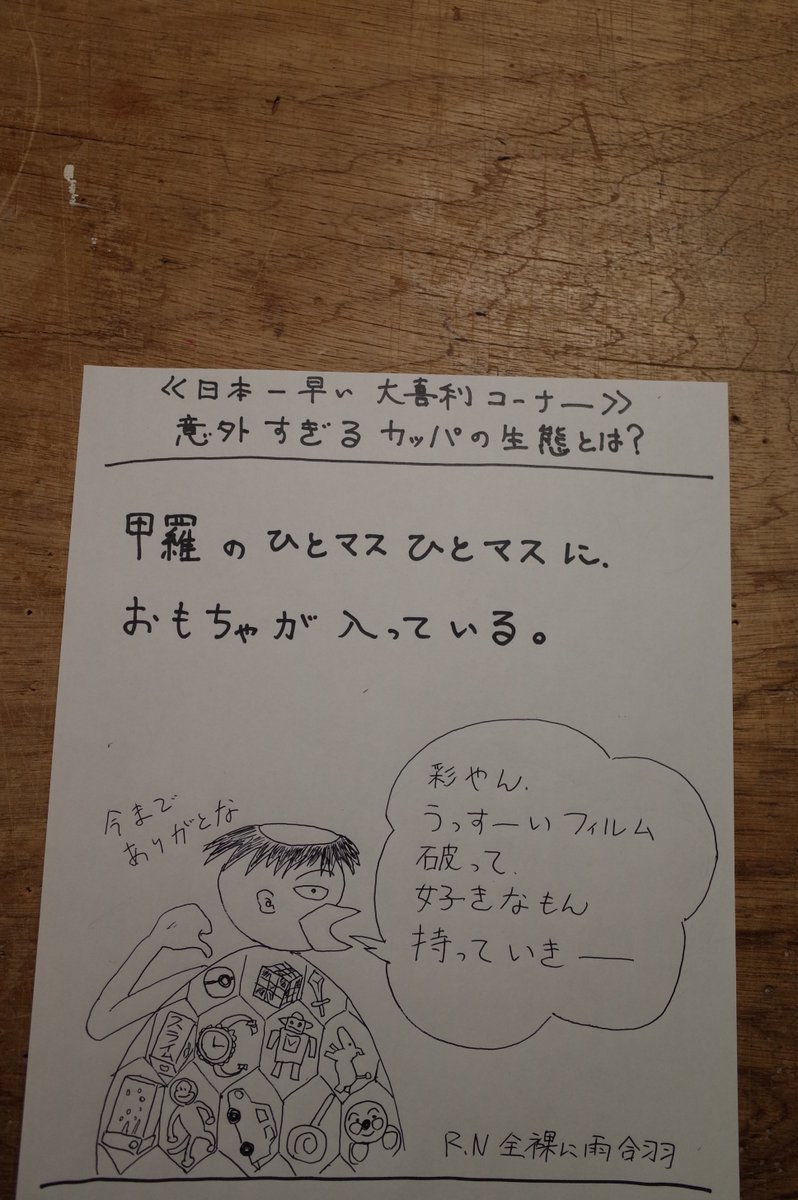 ≪日本一早い 大喜利コーナー≫
意外すぎるカッパの生態とは?
甲羅のひとマスひとマスに、
おもちゃが入っている。
今まで
ありがとな
彩やん、
うっすーいフィルム
破って、
好きなもん
持っていきー
スライム
R.N 全裸に雨合羽